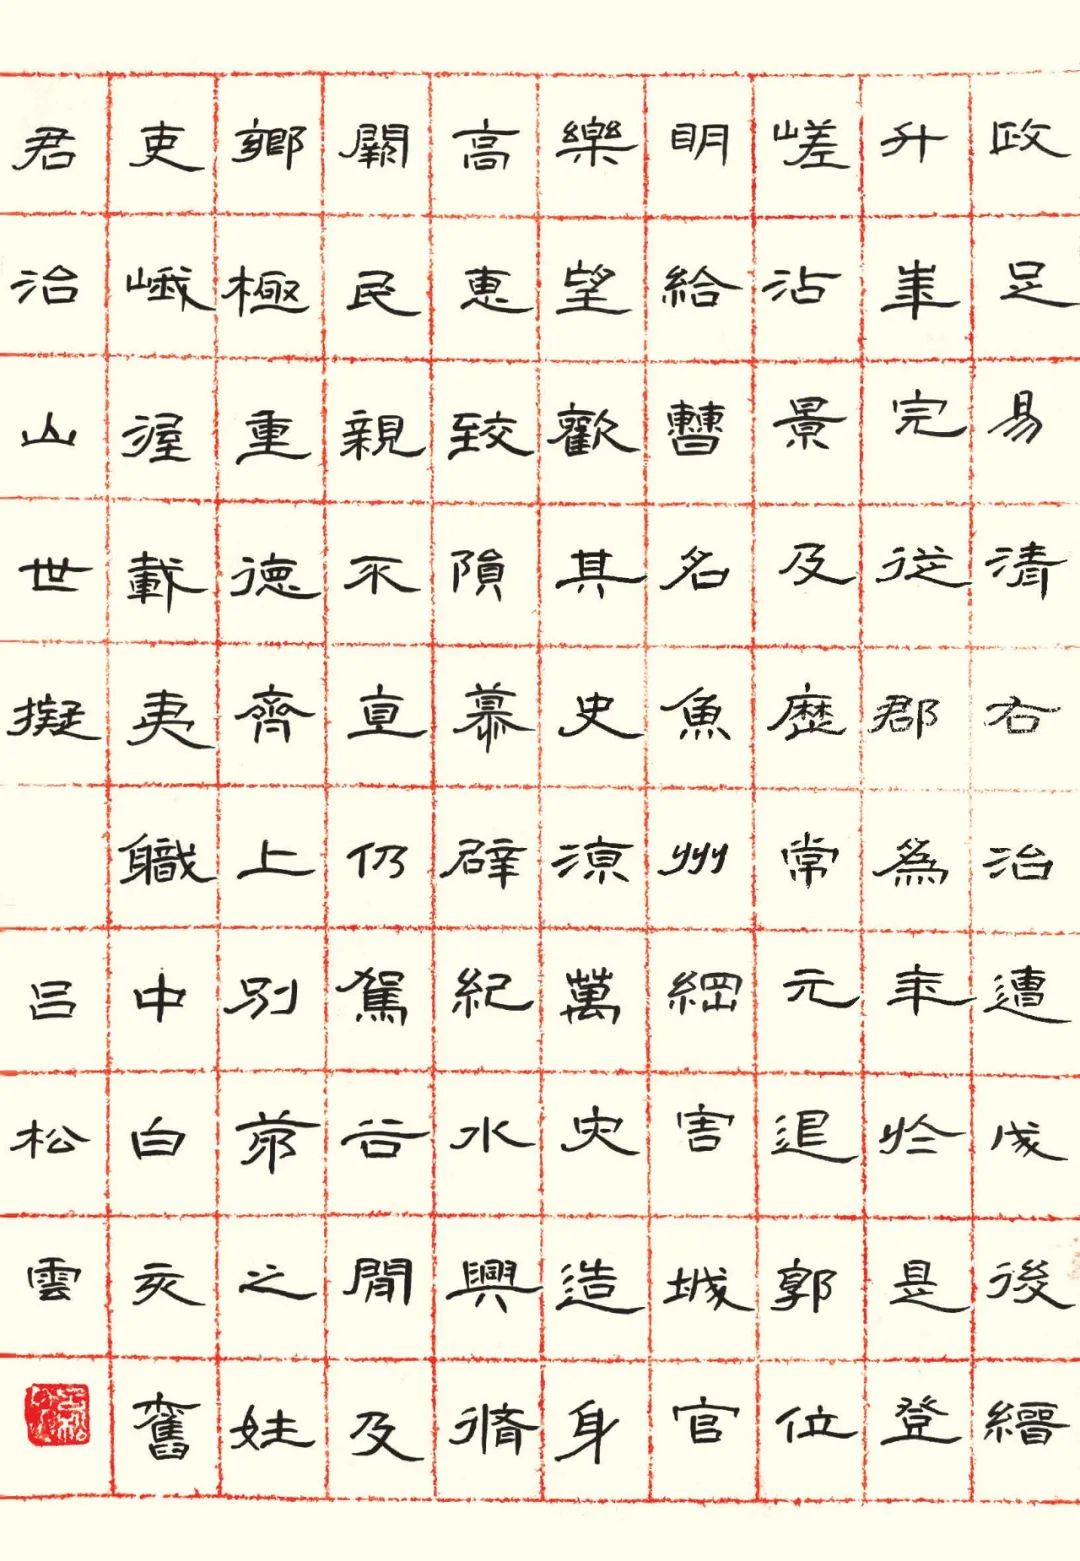 政足易清右治遭成後縉
升年完從郡為年於是登
嵯沾景及歷常元退郭位
明給曹名魚州綱害城官
樂望歡其史涼萬灾造身
高惠致隕慕辟紀水興脩
闕民親不直仍駕谷閒及
鄉極重德齊上別之姓
吏峨渥載夷職中白亥奮
君治山世擬 呂松雲